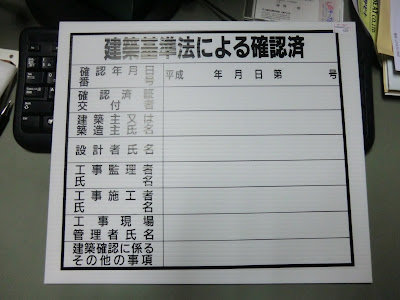 建築基準法による確認済
確認年月日
番号
平成　　年　月　日第　　号
確認済証
交付者
建築主又は
築造主氏名
設計者氏名
工事監理者
氏名
工事施工者
氏名
工事現場
管理者氏名
建築確認に係る
その他の事項